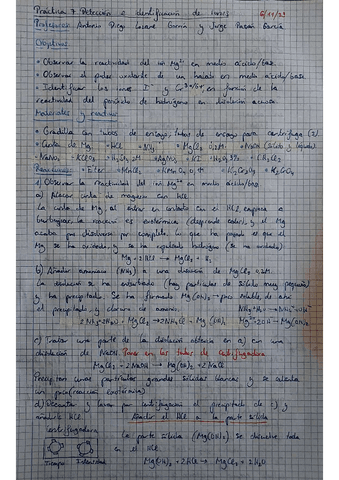 Práctica 7. Detección e identificación de iones 6/11/23
Profesores: Antonio Diego Lozano y Jorge Pasán García
Objetivos
• Observar la reactividad del ion Mg²⁺ en medio ácido/base.
• Observar el poder oxidante de un halato en medio ácido/base.
• Identificar los iones I⁻ y en función de la
reactividad del peróxido de hidrógeno en disolución acuosa.
Materiales y reactivos
• Gradilla con tubos de ensayo, tubos de ensayo para centrífuga (2)
• Cinta de Mg • HCl • NH₃ • MgCl₂ 0,2M • NaOH (sólido y líquido)
• NaNO₃ • KClO₃ • AgNO₃ • KI • H₂O₂ 3%
• Éter • MnCl₂ • KMnO₄ • K₂Cr₂O₇ • K₂CrO₄
a) Observar la reactividad del ion Mg²⁺ en medio ácido/base
a) Atacar cinta de magnesio con HCl.
La cinta de Mg al entrar en contacto con el HCl, empieza a
burbujear, la reacción es exotérmica (desprende calor), y el Mg
acaba por disolverse por completo. Lo que ha pasado es que el
Mg se ha oxidado, y se ha expulsado hidrógeno (se ha oxidado)
Mg + 2HCl → MgCl₂ + H₂
b) Añadir amoniaco (NH₃) a una disolución de MgCl₂ 0,2M.
La disolución se ha enturbiado (hay partículas de sólido muy pequeñas)
y ha precipitado. Se ha formado Mg(OH)₂ poco soluble, de ahí
el precipitado y cloruro de amonio.
2NH₃ + 2H₂O + MgCl₂ → 2NH₄Cl + Mg(OH)₂
c) Tratar una parte de la disolución obtenida en a) con una
disolución de NaOH. Poner en los tubos de centrifugadora
MgCl₂ + 2NaOH → Mg(OH)₂ + 2NaCl
Precipitan unas partículas grandes sólidas blancas y se calienta
(reacción exotérmica)
d) Decantar y lavar por centrifugación el precipitado de c) y
añadirle HCl. Añadir el HCl a la parte sólida
Centrifugadora
La parte sólida (Mg(OH)₂) se disuelve toda
en el HCl.
Mg(OH)₂ + 2HCl → MgCl₂ + 2H₂O